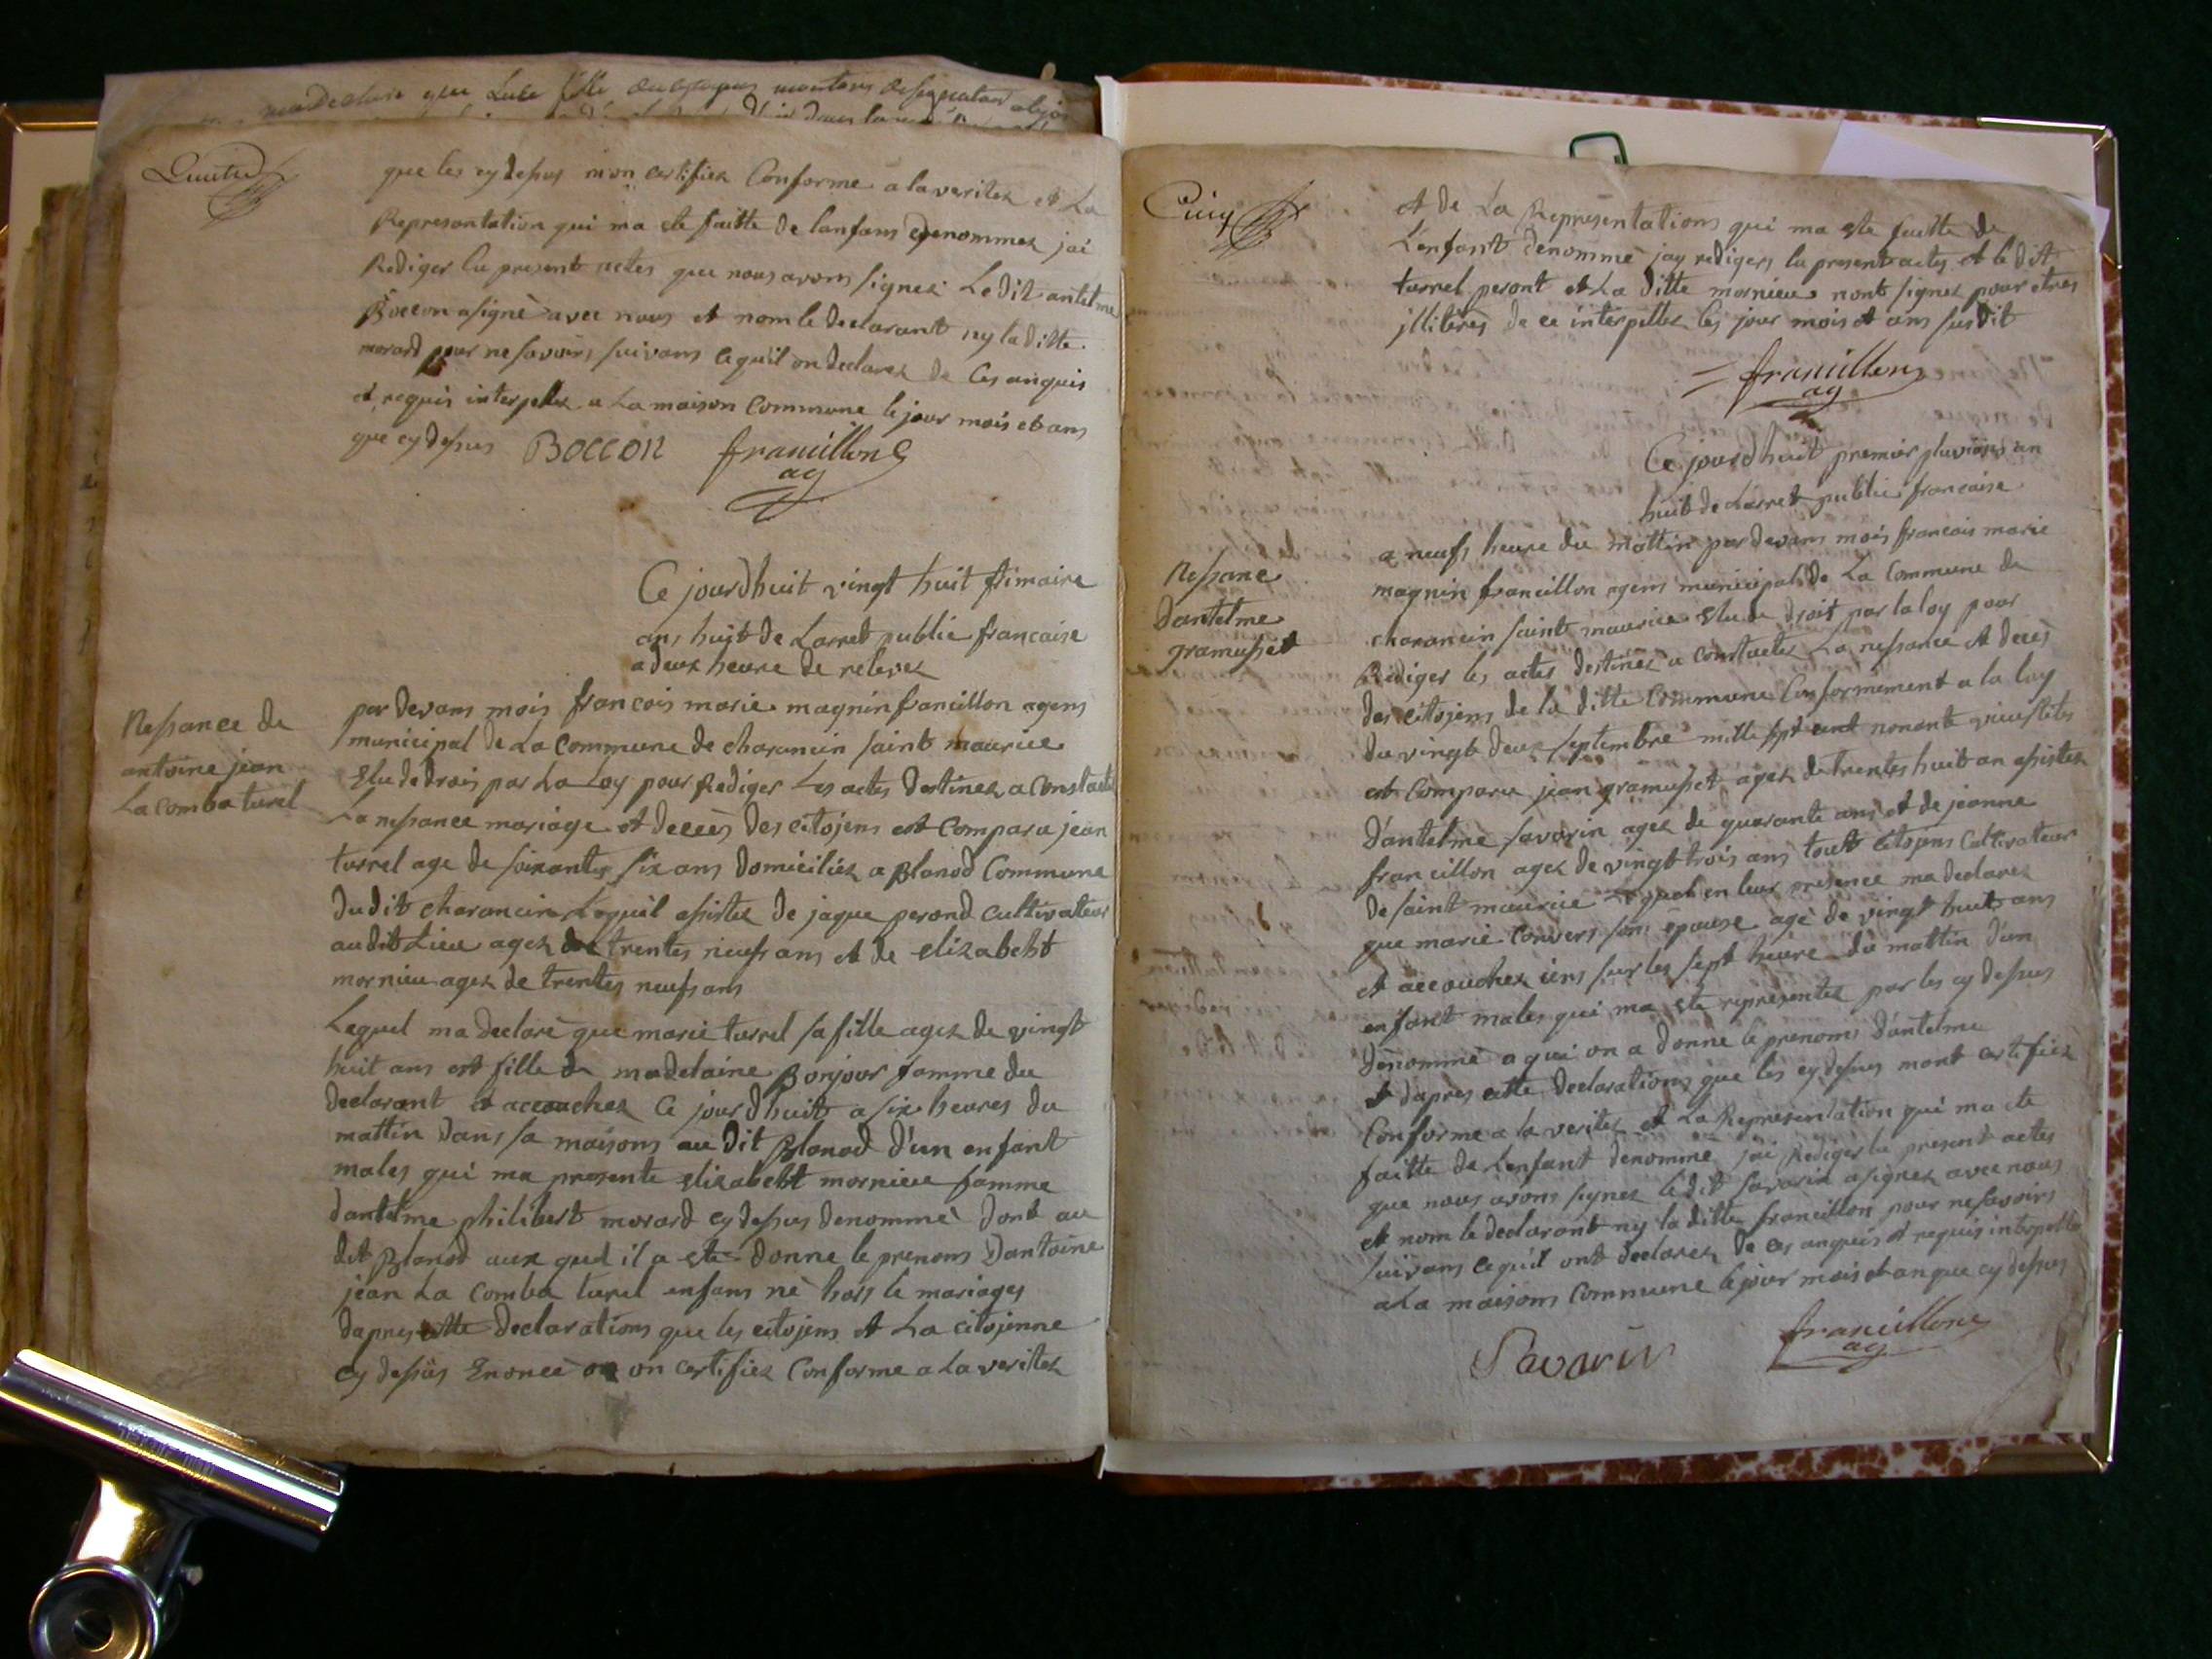 ma declare que
que les cy desus mon certifiez Conforme a la veritez et La
Represantation qui ma ete faitte de lanfans denommez jai
Rediger lu present actes que nous avons signez Ledit antelme
Boccon a signè avec nous et nom le declarant ny la ditte
morard pour ne savoirs suivans cequil on declarez de Ces anquis
et requis interpellez a La maison Commune le jour mois et ans
que cy desus BOCCON francillon
ag
Ce jourdhuit vingt huit frimaire
ans huit de Larret publie francaise
a deux heure de relevez
Nessance de
antoine jean
La comba turel
par devans mois francois marie magnin francillon agens
municipal de La Commune de charancin saint maurice
Elu de drois par La Loy pour Rediger Les actes Destinez a Constacté
La nessance mariage et decces Des citojens est Comparu jean
turrel age de soixantes six ans Domiciliez a Blanod Commune
Dudit charancin Lequil assistez de jaque perond Cultivateur
audit Lieu agez de trentes neufs ans et de elizabeht
mornieu agez de trentes neufs ans
Lequel ma declarè que marie turrel sa fille agez de vingt
huit ans est fille de madelaine Bonjour famme du
declarant et accouchez Ce jourdhuit a six heures du
mattin Dans sa maisons au Dit Blanod D'un enfant
males qui ma presente elizabeht mornieu famme
dantelme philibert morard cy desus denommè Dont au
dit Blanod aux quel il a ete donne le prenoms Dantoine
jean La Comba turel enfans nè hors le mariages
dapres cette Declarations que les citojens et La citojenne
cy desùs Enoncè on certifiez Conforme a La veritez
Cinq
et de La Representations qui ma ete faitte de
Lenfant denommè jay redigers lu present actes et le dit
turrel peront et La ditte mornieu nont signez pour etres
jllitères de ce interpellez les jour mois et ans susdit
francillon
ag
Ce jourdhuit premier pluviôjs an
huit de Larret publie francaise
Nessane
Dantelme
gramusset
a neufs heure du mattin par devans mois francois marie
magnin francillon agens municipal de La Commune de
charancin saint maurice elu de droit par la loy pour
Rediger les actes destinez a constactez La nessance et deces
des citojens de la ditte Commune Conformement a la loy
du vingt deux septembre mille sept cent nonante
est Comparu jean gramusset agez de trentes huit an assistez
D'antelme savarin agez de quarante ans et de jeanne
francillon agez de vingt trois ans tout citojens Cultivateur
de saint maurice Lequel en leur presence ma declarez
que marie Convers son epouse agè de vingt huit ans
et accouchez iers sur les sept heure du mattin d'un
enfant males qui ma ete representez par les cy desus
dènommè a qui on a donne le prenoms d'antelme
et dapres cette Declarations que les cy desus mont certifiez
Conforme a la veritez et La Representation qui ma ete
faitte de Lenfant denomme jai Rediger lu present actes
que nous avons signez ledit savarin a signez avec nous
et nom le declarant ny la ditte francillon pour ne savoirs
suivans cequil ont declarez de ces anquis et requis interpellez
a La maisons Commune le jour mois et an que cy desus
Savarin francillon
ag